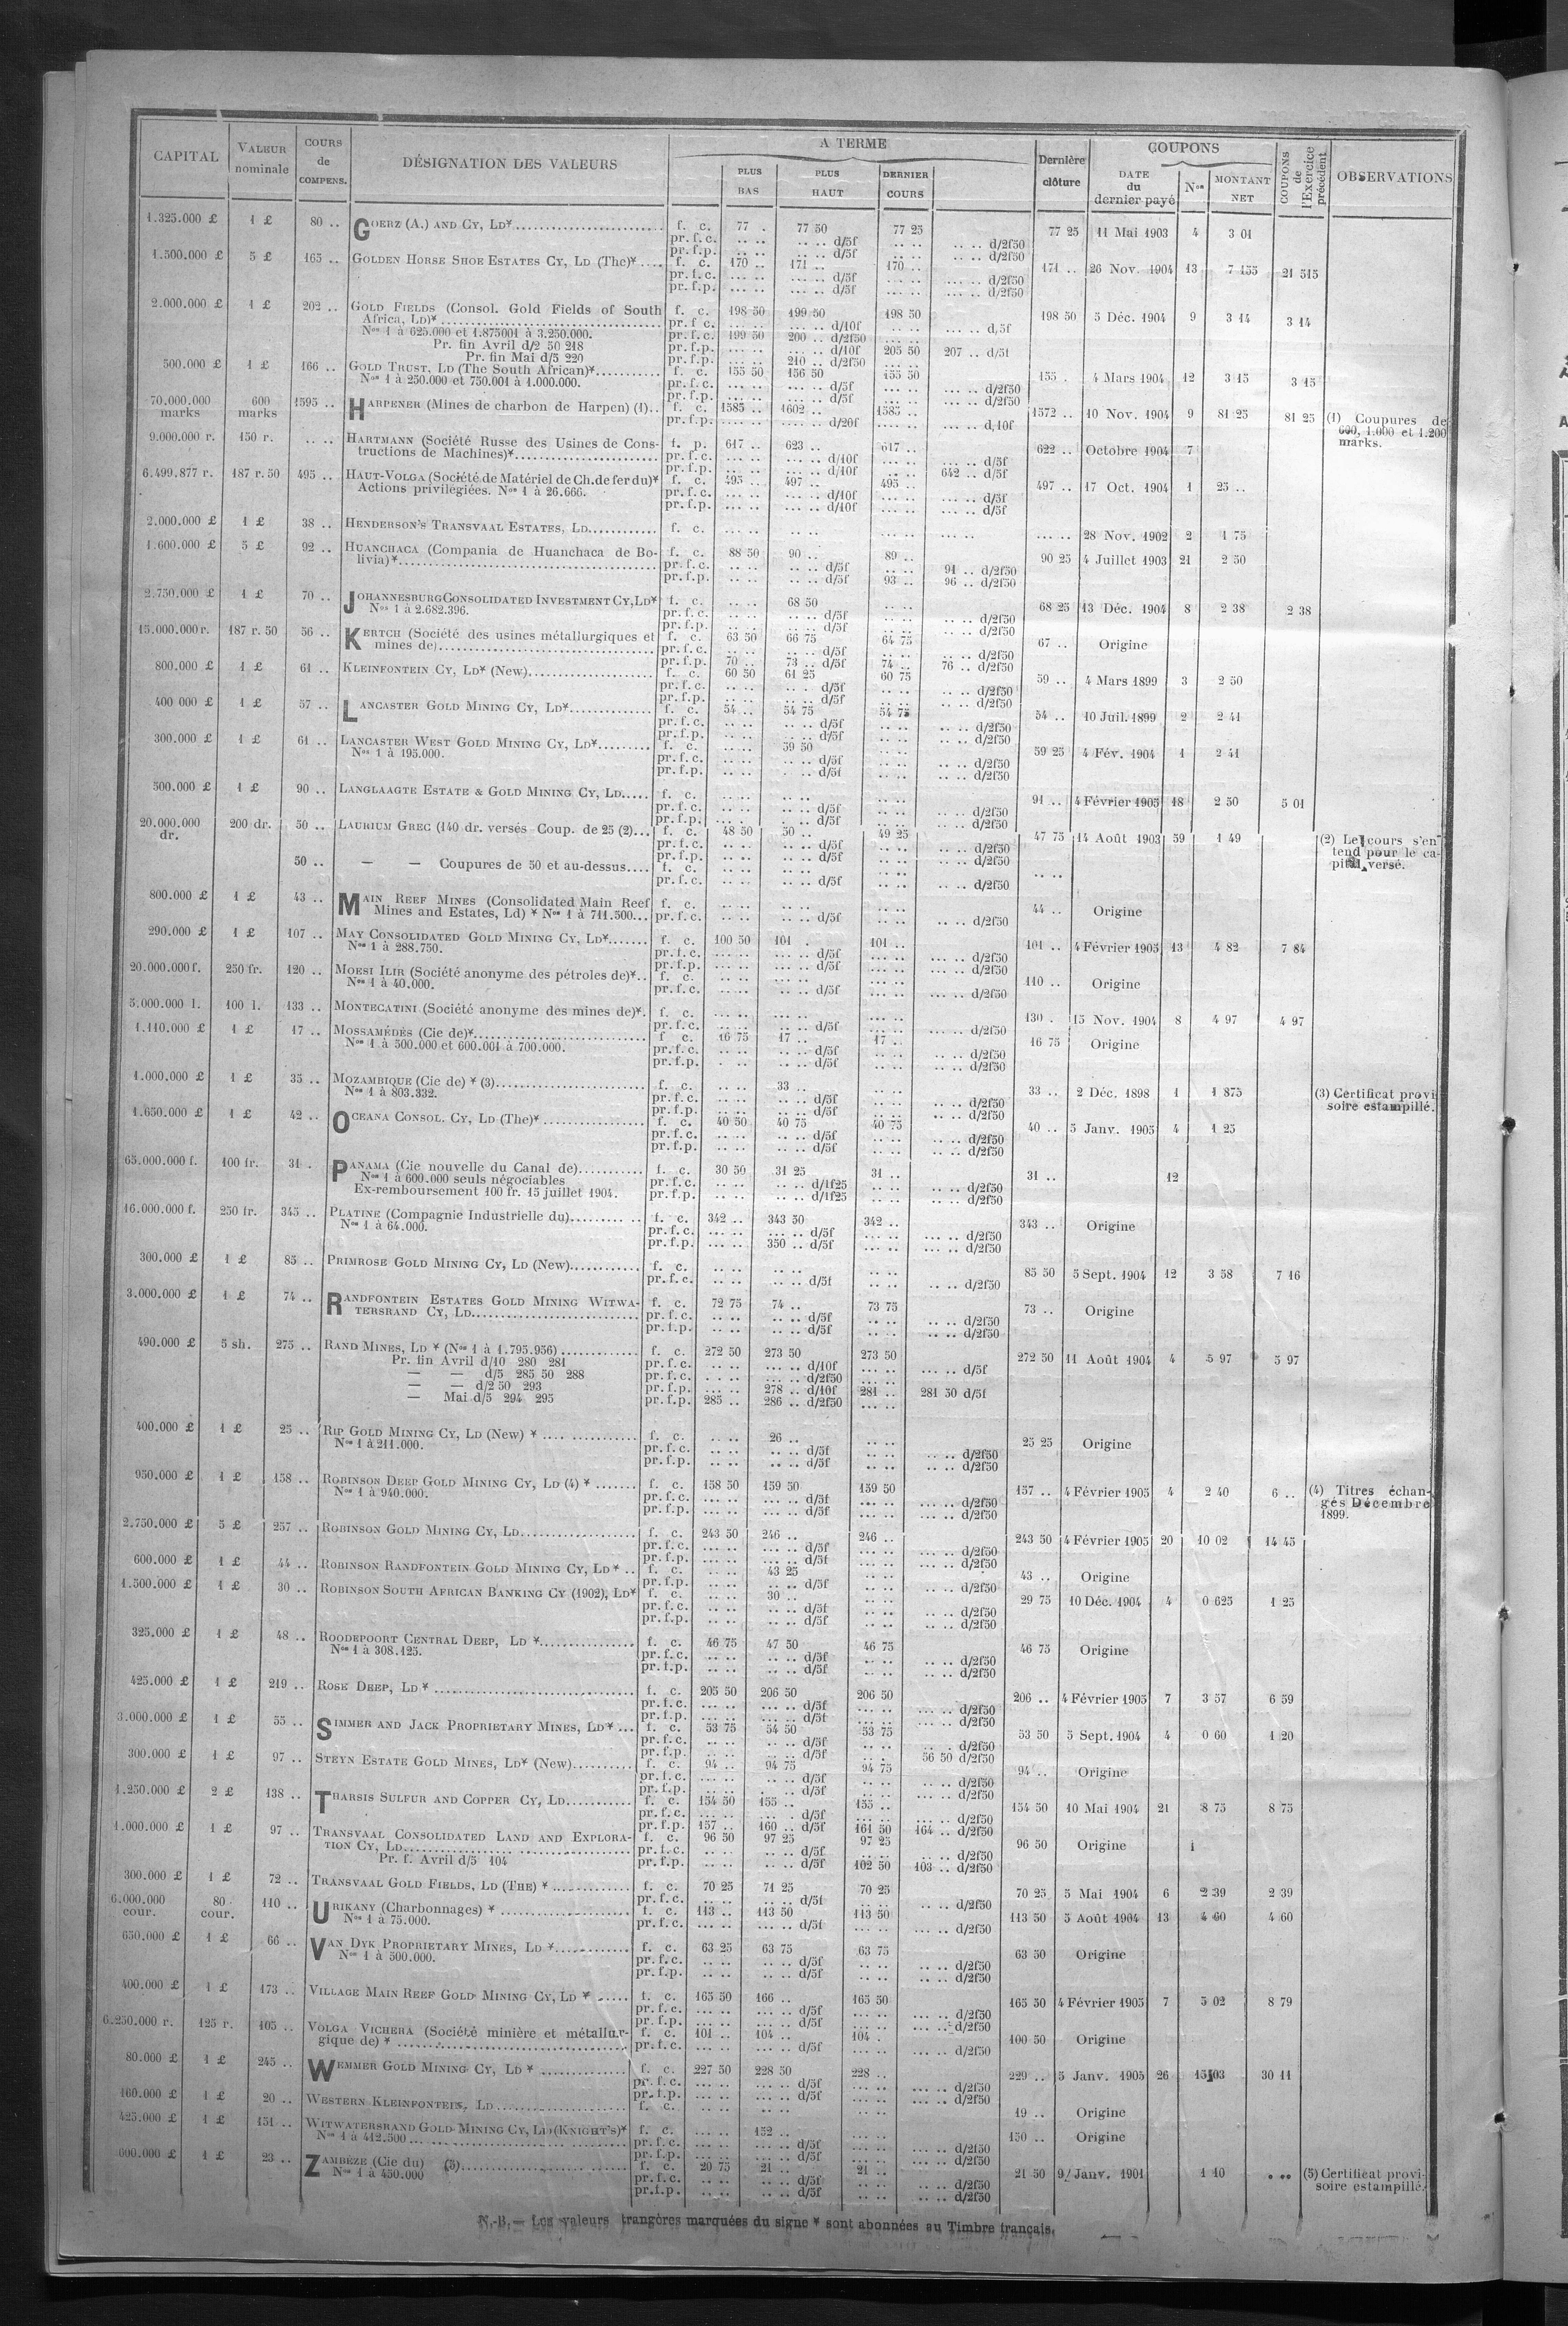 CAPITAL | VALEUR nominale | COURS de COMPENS. | DÉSIGNATION DES VALEURS | A TERME | PLUS BAS | PLUS HAUT | DERNIER COURS | Dernière clôture | COUPONS | DATE du dernier payé | Nos | MONTANT NET | COUPONS de l'Exercice précédent | OBSERVATIONS
1.325.000 £ 1 £ 80 .. GOERZ (A.) AND CY, LD* f. c. 77 . 77 50 77 25 77 25 11 Mai 1903 4 3 01
pr. f. c. .. .. .. .. d/5f .. .. .. .. d/2f50
pr. f. p. .. .. .. .. d/5f .. .. .. .. d/2f50
1.500.000 £ 5 £ 165 .. GOLDEN HORSE SHOE ESTATES CY, LD (The)* f. c. 170 .. 171 .. 170 .. 171 .. 26 Nov. 1904 13 7 155 21 515
pr. f. c. ... .. ... .. d/5f ... .. d/2f50
pr. f. p. ... .. ... .. d/5f ... .. d/2f50
2.000.000 £ 1 £ 202 .. GOLD FIELDS (Consol. Gold Fields of South f. c. 198 50 199 50 198 50 198 50 5 Déc. 1904 9 3 14 3 14
Africa, LD)* pr. f. c. ... .. ... .. d/10f ... .. ... .. d/5f
Nos 1 à 625.000 et 1.875001 à 3.250.000. pr. f. c. 199 50 200 .. d/2f50 ... ..
Pr. fin Avril d/2 50 218 pr. f. p. ... .. ... .. d/10f 205 50 207 .. d/5f
Pr. fin Mai d/5 220 pr. f. p. ... .. 210 .. d/2f50 ... ..
500.000 £ 1 £ 166 .. GOLD TRUST, LD (The South African)* f. c. 155 50 156 50 155 50 155 . 4 Mars 1904 12 3 15 3 15
Nos 1 à 250.000 et 750.001 à 1.000.000. pr. f. c. ... .. ... .. d/5f ... .. ... .. d/2f50
pr. f. p. ... .. ... .. d/5f ... .. ... .. d/2f50
70.000.000 marks 600 marks 1595 .. HARPENER (Mines de charbon de Harpen) (1).. f. c. 1585 .. 1602 .. 1585 .. 1572 .. 10 Nov. 1904 9 81 25 81 25 (1) Coupures de 600, 1.000 et 1.200 marks.
pr. f. p. .... .. .... .. d/20f .... .. .... .. d/10f
9.000.000 r. 150 r. .. .. HARTMANN (Société Russe des Usines de Cons- f. p. 617 .. 623 .. 617 .. 622 .. Octobre 1904 7
tructions de Machines)* pr. f. c. ... .. ... .. d/10f ... .. ... .. d/5f
pr. f. p. ... .. ... .. d/10f ... .. 642 .. d/5f
6.499.877 r. 187 r. 50 495 .. HAUT-VOLGA (Société de Matériel de Ch. de fer du)* f. c. 495 .. 497 .. 495 .. 497 .. 17 Oct. 1904 1 25 ..
Actions privilégiées. Nos 1 à 26.666. pr. f. c. ... .. ... .. d/10f ... .. ... .. d/5f
pr. f. p. ... .. ... .. d/10f ... .. ... .. d/5f
2.000.000 £ 1 £ 38 .. HENDERSON'S TRANSVAAL ESTATES, LD f. c. ... .. .. .. ... .. ... .. ... .. 28 Nov. 1902 2 1 75
1.600.000 £ 5 £ 92 .. HUANCHACA (Compania de Huanchaca de Bo- f. c. 88 50 90 .. 89 .. 90 25 4 Juillet 1903 21 2 50
livia)* pr. f. c. .. .. .. .. d/5f .. .. 91 .. d/2f50
pr. f. p. .. .. .. .. d/5f 93 .. 96 .. d/2f50
2.750.000 £ 1 £ 70 .. JOHANNESBURG CONSOLIDATED INVESTMENT CY, LD* f. c. .. .. 68 50 .. .. 68 25 13 Déc. 1904 8 2 38 2 38
Nos 1 à 2.682.396. pr. f. c. .. .. .. .. d/5f .. .. .. .. d/2f50
pr. f. p. .. .. .. .. d/5f .. .. .. .. d/2f50
15.000.000 r. 187 r. 50 56 .. KERTCH (Société des usines métallurgiques et f. c. 63 50 66 75 64 75 67 .. Origine
mines de) pr. f. c. .. .. .. .. d/5f .. .. .. .. d/2f50
pr. f. p. 70 .. 73 .. d/5f 74 .. 76 .. d/2f50
800.000 £ 1 £ 61 .. KLEINFONTEIN CY, LD* (New) f. c. 60 50 61 25 60 75 59 .. 4 Mars 1899 3 2 50
pr. f. c. .. .. .. . d/5f .. .. .. .. d/2f50
pr. f. p. .. .. .. .. d/5f .. .. .. .. d/2f50
400 000 £ 1 £ 57 .. LANCASTER GOLD MINING CY, LD* f. c. 54 .. 54 75 54 75 54 .. 10 Juil. 1899 2 2 41
pr. f. c. .. .. .. .. d/5f .. .. .. .. d/2f50
pr. f. p. .. .. .. .. d/5f .. .. .. .. d/2f50
300.000 £ 1 £ 61 .. LANCASTER WEST GOLD MINING CY, LD* f. c. .. .. 59 50 .. .. 59 25 4 Fév. 1904 1 2 41
Nos 1 à 195.000. pr. f. c. .. .. .. .. d/5f .. .. .. .. d/2f50
pr. f. p. .. .. . .. d/5f .. .. .. .. d/2f50
500.000 £ 1 £ 90 .. LANGLAAGTE ESTATE & GOLD MINING CY, LD f. c. .. .. .. .. .. .. 91 .. 4 Février 1905 18 2 50 5 01
pr. f. c. .. .. .. .. d/5f .. .. .. .. d/2f50
pr. f. p. .. .. .. .. d/5f .. .. .. .. d/2f50
20.000.000 dr. 200 dr. 50 .. LAURIUM GREC (140 dr. versés Coup. de 25 (2) f. c. 48 50 50 .. 49 25 47 75 14 Août 1903 59 1 49 (2) Le cours s'entend pour le capital versé.
pr. f. c. .. .. .. .. d/5f .. .. .. .. d/2f50
pr. f. p. .. .. .. .. d/5f .. .. .. .. d/2f50
50 .. — — Coupures de 50 et au-dessus f. c. .. .. .. .. .. .. .. ..
pr. f. c. .. .. .. .. d/5f .. .. .. .. d/2f50
800.000 £ 1 £ 43 .. MAIN REEF MINES (Consolidated Main Reef f. c. .. .. .. .. .. .. 44 .. Origine
Mines and Estates, Ld) * Nos 1 à 711.500 pr. f. c. .. .. .. .. d/5f .. .. .. .. d/2f50
290.000 £ 1 £ 107 .. MAY CONSOLIDATED GOLD MINING CY, LD* f. c. 100 50 101 . 101 .. 101 .. 4 Février 1905 13 4 82 7 84
Nos 1 à 288.750. pr. f. c. ... .. ... .. d/5f ... .. ... .. d/2f50
pr. f. p. ... .. ... .. d/5f ... .. ... .. d/2f50
20.000.000 f. 250 fr. 120 .. MOESI ILIR (Société anonyme des pétroles de)* f. c. ... .. ... .. ... .. 110 .. Origine
Nos 1 à 40.000. pr. f. c. ... .. ... .. d/5f ... .. ... .. d/2f50
5.000.000 l. 100 l. 133 .. MONTECATINI (Société anonyme des mines de)* f. c. ... .. ... .. ... .. 130 . 15 Nov. 1904 8 4 97 4 97
pr. f. c. ... .. ... .. d/5f ... .. ... .. d/2f50
1.110.000 £ 1 £ 17 .. MOSSAMÉDÈS (Cie de)* f. c. 16 75 17 .. 17 .. 16 75 Origine
Nos 1 à 500.000 et 600.001 à 700.000. pr. f. c. .. .. .. .. d/5f .. .. .. .. d/2f50
pr. f. p. . .. . .. d/5f .. .. .. .. d/2f50
1.000.000 £ 1 £ 35 .. MOZAMBIQUE (Cie de) * (3) f. c. .. .. 33 .. .. .. 33 .. 2 Déc. 1898 1 1 875 (3) Certificat provisoire estampillé.
Nos 1 à 803.332. pr. f. c. .. .. .. .. d/5f .. .. .. .. d/2f50
pr. f. p. .. .. .. .. d/5f .. .. .. .. d/2f50
1.650.000 £ 1 £ 42 .. OCEANA CONSOL. CY, LD (The)* f. c. 40 50 40 75 40 75 40 .. 5 Janv. 1905 4 1 25
pr. f. c. .. .. .. .. d/5f .. .. .. .. d/2f50
pr. f. p. .. .. .. .. d/5f .. .. .. .. d/2f50
65.000.000 f. 100 fr. 31 . PANAMA (Cie nouvelle du Canal de) f. c. 30 50 31 25 31 .. 31 .. 12
Nos 1 à 600.000 seuls négociables pr. f. c. .. .. .. .. d/1f25 .. .. .. .. d/2f50
Ex-remboursement 100 fr. 15 juillet 1904. pr. f. p. .. .. .. .. d/1f25 .. .. .. .. d/2f50
16.000.000 f. 250 fr. 345 .. PLATINE (Compagnie Industrielle du) f. c. 342 .. 343 50 342 .. 343 .. Origine
Nos 1 à 64.000. pr. f. c. ... .. ... .. d/5f ... .. ... .. d/2f50
pr. f. p. ... .. 350 .. d/5f ... .. ... .. d/2f50
300.000 £ 1 £ 85 .. PRIMROSE GOLD MINING CY, LD (New) f. c. .. .. .. .. .. .. 85 50 5 Sept. 1904 12 3 58 7 16
pr. f. c. .. .. .. .. d/5f .. .. .. .. d/2f50
3.000.000 £ 1 £ 74 .. RANDFONTEIN ESTATES GOLD MINING WITWA- f. c. 72 75 74 .. 73 75 73 .. Origine
TERSRAND CY, LD pr. f. c. .. .. .. .. d/5f .. .. .. .. d/2f50
pr. f. p. .. .. .. .. d/5f .. .. .. .. d/2f50
490.000 £ 5 sh. 275 .. RAND MINES, LD * (Nos 1 à 1.795.956) f. c. 272 50 273 50 273 50 272 50 11 Août 1904 4 5 97 5 97
Pr. fin Avril d/10 280 281 pr. f. c. .. .. ... .. d/10f ... .. ... .. d/5f
— — d/5 285 50 288 pr. f. c. . .. .. ... .. d/2f50 ... ..
— — d/2 50 293 pr. f. p. ... .. 278 .. d/10f 281 .. 281 50 d/5f
— Mai d/5 294 295 pr. f. p. 285 .. 286 .. d/2f50 ... ..
400.000 £ 1 £ 25 .. RIP GOLD MINING CY, LD (New) * f. c. .. .. 26 .. .. .. 25 25 Origine
Nos 1 à 211.000. pr. f. c. .. .. .. .. d/5f .. .. .. .. d/2f50
pr. f. p. .. .. .. .. d/5f .. .. .. .. d/2f50
950.000 £ 1 £ 158 .. ROBINSON DEEP GOLD MINING CY, LD (4) * f. c. 158 50 159 50 159 50 157 .. 4 Février 1905 4 2 40 6 .. (4) Titres échangés Décembre 1899.
Nos 1 à 940.000. pr. f. c. ... .. ... .. d/5f ... .. ... .. d/2f50
pr. f. p. ... .. ... .. d/5f ... .. ... .. d/2f50
2.750.000 £ 5 £ 257 .. ROBINSON GOLD MINING CY, LD f. c. 243 50 246 .. 246 .. 243 50 4 Février 1905 20 10 02 14 45
pr. f. c. ... .. ... .. d/5f ... .. ... .. d/2f50
pr. f. p. ... .. ... .. d/5f ... .. ... .. d/2f50
600.000 £ 1 £ 44 .. ROBINSON RANDFONTEIN GOLD MINING CY, LD * f. c. .. .. 43 25 .. .. 43 .. Origine
pr. f. p. .. .. .. .. d/5f .. .. .. .. d/2f50
1.500.000 £ 1 £ 30 .. ROBINSON SOUTH AFRICAN BANKING CY (1902), LD* f. c. .. .. 30 .. .. .. 29 75 10 Déc. 1904 4 0 625 1 25
pr. f. c. .. .. .. .. d/5f .. .. .. .. d/2f50
pr. f. p. .. .. .. .. d/5f .. .. .. .. d/2f50
325.000 £ 1 £ 48 .. ROODEPOORT CENTRAL DEEP, LD * f. c. 46 75 47 50 46 75 46 75 Origine
Nos 1 à 308.125. pr. f. c. .. .. .. .. d/5f .. .. .. .. d/2f50
pr. f. p. .. .. .. .. d/5f .. .. .. .. d/2f50
425.000 £ 1 £ 219 .. ROSE DEEP, LD * f. c. 205 50 206 50 206 50 206 .. 4 Février 1905 7 3 57 6 59
pr. f. c. ... .. ... .. d/5f ... .. ... .. d/2f50
pr. f. p. ... .. ... .. d/5f ... .. ... .. d/2f50
3.000.000 £ 1 £ 55 .. SIMMER AND JACK PROPRIETARY MINES, LD* f. c. 53 75 54 50 53 75 53 50 5 Sept. 1904 4 0 60 1 20
pr. f. c. .. .. .. .. d/5f .. .. .. . d/2f50
pr. f. p. .. .. .. .. d/5f .. . 56 50 d/2f50
300.000 £ 1 £ 97 .. STEYN ESTATE GOLD MINES, LD* (New) f. c. 94 .. 94 75 94 75 94 .. Origine
pr. f. c. ... .. .. .. d/5f .. .. ... .. d/2f50
pr. f. p. .. .. .. . d/5f .. .. ... .. d/2f50
1.250.000 £ 2 £ 138 .. THARSIS SULFUR AND COPPER CY, LD f. c. 154 50 155 .. 155 .. 154 50 10 Mai 1904 21 8 75 8 75
pr. f. c. ... .. ... . d/5f ... .. ... .. d/2f50
pr. f. p. 157 .. 160 .. d/5f 161 50 164 .. d/2f50
1.000.000 £ 1 £ 97 .. TRANSVAAL CONSOLIDATED LAND AND EXPLORA- f. c. 96 50 97 25 97 25 96 50 Origine 1
TION CY, LD pr. f. c. .. .. .. .. d/5f .. .. .. .. d/2f50
Pr. f. Avril d/5 104 pr. f. p. .. .. .. .. d/5f 102 50 103 .. d/2f50
300.000 £ 1 £ 72 .. TRANSVAAL GOLD FIELDS, LD (THE) * f. c. 70 25 71 25 70 25 70 25 5 Mai 1904 6 2 39 2 39
pr. f. c. .. .. .. .. d/5f .. .. .. .. d/2f50
6.000.000 cour. 80 cour. 110 .. URIKANY (Charbonnages) * f. c. 113 .. 113 50 113 50 113 50 5 Août 1904 13 4 60 4 60
Nos 1 à 75.000. pr. f. c. ... .. ... .. d/5f ... .. ... .. d/2f50
650.000 £ 1 £ 66 .. VAN DYK PROPRIETARY MINES, LD * f. c. 63 25 63 75 63 75 63 50 Origine
Nos 1 à 500.000. pr. f. c. .. .. .. .. d/5f .. .. .. .. d/2f50
pr. f. p. .. .. .. .. d/5f .. .. .. .. d/2f50
400.000 £ 1 £ 173 .. VILLAGE MAIN REEF GOLD MINING CY, LD * f. c. 165 50 166 .. 165 50 165 50 4 Février 1905 7 5 02 8 79
pr. f. c. ... .. ... .. d/5f ... .. ... .. d/2f50
pr. f. p. ... .. ... .. d/5f ... .. ... .. d/2f50
6.250.000 r. 125 r. 105 .. VOLGA VICHERA (Société minière et métallur- f. c. 101 .. 104 .. 104 . 100 50 Origine
gique de) * pr. f. c. ... .. ... .. d/5f ... .. ... .. d/2f50
80.000 £ 1 £ 245 .. WEMMER GOLD MINING CY, LD * f. c. 227 50 228 50 228 .. 229 .. 5 Janv. 1905 26 15 03 30 11
pr. f. c. ... .. ... .. d/5f ... .. ... .. d/2f50
pr. f. p. ... .. ... .. d/5f ... .. ... .. d/2f50
160.000 £ 1 £ 20 .. WESTERN KLEINFONTEIN, LD f. c. .. .. .. .. .. .. 19 .. Origine
425.000 £ 1 £ 151 .. WITWATERSRAND GOLD MINING CY, LD (KNIGHT'S)* f. c. ... .. 152 .. ... .. 150 .. Origine
Nos 1 à 412.500 pr. f. c. ... .. ... .. d/5f ... .. ... .. d/2f50
pr. f. p. ... .. ... .. d/5f ... .. ... .. d/2f50
600.000 £ 1 £ 23 .. ZAMBÈZE (Cie du) (5) f. c. 20 75 21 .. 21 .. 21 50 9 Janv. 1901 1 10 (5) Certificat provisoire estampillé.
Nos 1 à 450.000 pr. f. c. .. .. .. .. d/5f .. .. .. .. d/2f50
pr. f. p. .. .. .. .. d/5f .. .. .. .. d/2f50
N.-B. — Les valeurs trangères marquées du signe * sont abonnées au Timbre français.